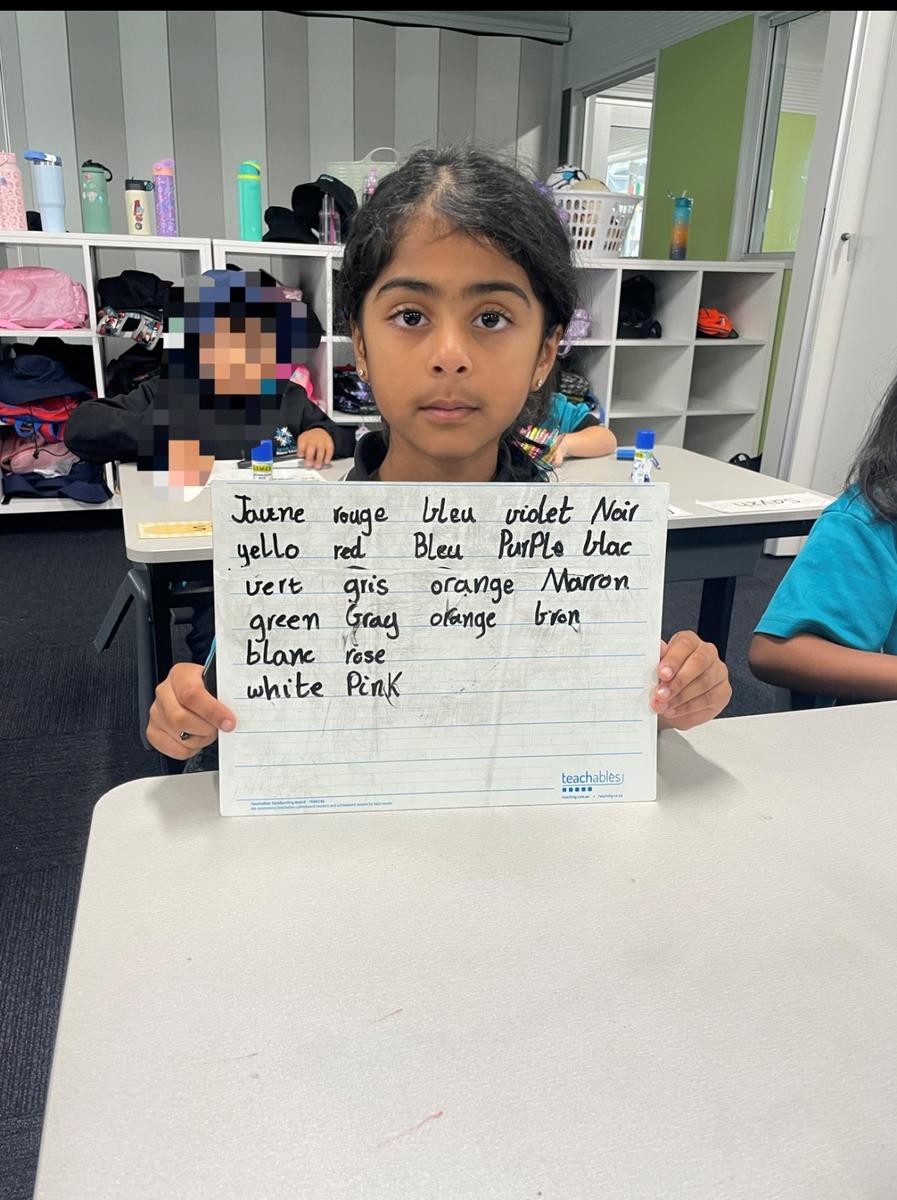 Jaune rouge bleu violet Noir
yello red Bleu PurPLe blac
vert gris orange Marron
green Gray orange bron
blanc rose
white Pink
teachables